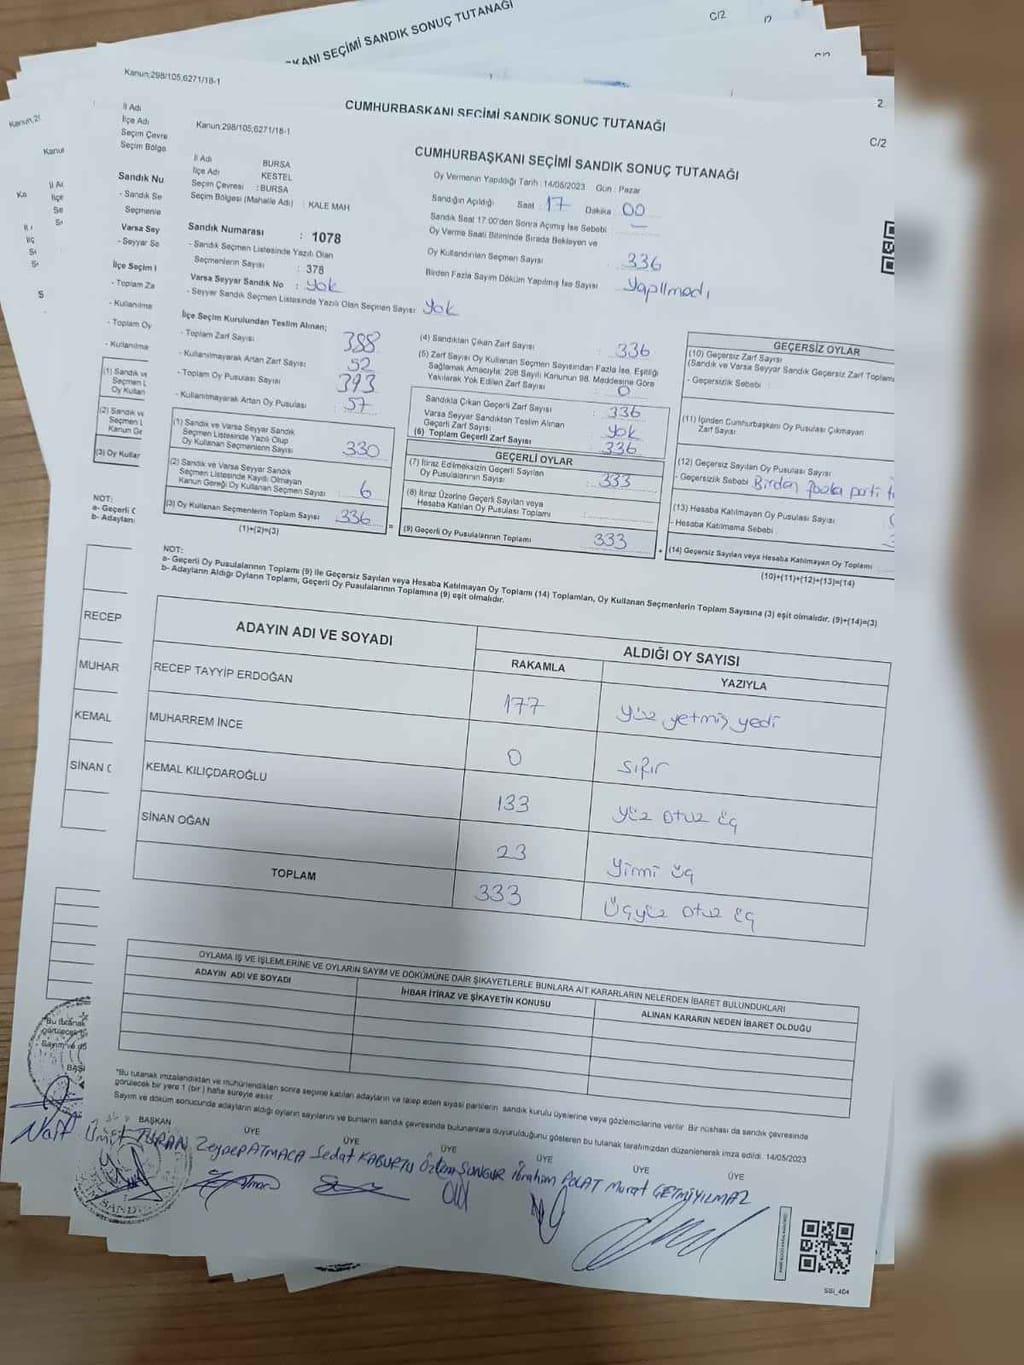 -KANI SEÇİMİ SANDIK SONUÇ TUTANAĞI
C/2
Kanun;298/105,6271/18-1
CUMHURBAŞKANI SEÇİMİ SANDIK SONUÇ TUTANAĞI
2
C/2
İl Adı
İlçe Adı
Seçim Çevre
Seçim Bölge
Sandık Nu
- Sandık Se
Seçmenle
Varsa Sey
- Seyyar Se
İlçe Seçim
- Toplam Za
- Kullanılma
- Toplam Oy
- Kullanılma
RECEP
MUHAR
KEMAL
SİNAN
Kanun;298/105,6271/18-1
CUMHURBAŞKANI SEÇİMİ SANDIK SONUÇ TUTANAĞI
İl Adı BURSA
İlçe Adı KESTEL
Seçim Çevresi : BURSA
Seçim Bölgesi (Mahalle Adı) : KALE MAH
Oy Vermenin Yapıldığı Tarih : 14/05/2023 Gün : Pazar
Sandığın Açıldığı Saat 17 Dakika 00
Sandık Saat 17:00'den Sonra Açılmış İse Sebebi : —
Oy Verme Saati Bitiminde Sırada Bekleyen ve
Oy Kullandırılan Seçmen Sayısı 336
Birden Fazla Sayım Döküm Yapılmış İse Sayısı Yapılmadı
Sandık Numarası : 1078
- Sandık Seçmen Listesinde Yazılı Olan
Seçmenlerin Sayısı : 378
Varsa Seyyar Sandık No : Yok
- Seyyar Sandık Seçmen Listesinde Yazılı Olan Seçmen Sayısı Yok
İlçe Seçim Kurulundan Teslim Alınan;
- Toplam Zarf Sayısı 388
- Kullanılmayarak Artan Zarf Sayısı 52
- Toplam Oy Pusulası Sayısı 393
- Kullanılmayarak Artan Oy Pusulası 57
(1) Sandık ve Varsa Seyyar Sandık
Seçmen Listesinde Yazılı Olup
Oy Kullanan Seçmenlerin Sayısı 330
(2) Sandık ve Varsa Seyyar Sandık
Seçmen Listesinde Kayıtlı Olmayan
Kanun Gereği Oy Kullanan Seçmen Sayısı 6
(3) Oy Kullanan Seçmenlerin Toplam Sayısı 336
(1)+(2)=(3)
(4) Sandıktan Çıkan Zarf Sayısı : 336
(5) Zarf Sayısı Oy Kullanan Seçmen Sayısından Fazla İse, Eşitliği
Sağlamak Amacıyla; 298 Sayılı Kanunun 98. Maddesine Göre
Yakılarak Yok Edilen Zarf Sayısı : 0
Sandıkta Çıkan Geçerli Zarf Sayısı : 336
Varsa Seyyar Sandıktan Teslim Alınan
Geçerli Zarf Sayısı : Yok
(6) Toplam Geçerli Zarf Sayısı : 336
GEÇERLİ OYLAR
(7) İtiraz Edilmeksizin Geçerli Sayılan
Oy Pusulalarının Sayısı : 333
(8) İtiraz Üzerine Geçerli Sayılan veya
Hesaba Katılan Oy Pusulası Toplamı
(9) Geçerli Oy Pusulalarının Toplamı 333
GEÇERSİZ OYLAR
(10) Geçersiz Zarf Sayısı
(Sandık ve Varsa Seyyar Sandık Geçersiz Zarf Toplamı
- Geçersizlik Sebebi
(11) İçinden Cumhurbaşkanı Oy Pusulası Çıkmayan
Zarf Sayısı
(12) Geçersiz Sayılan Oy Pusulası Sayısı
- Geçersizlik Sebebi Birden fazla parti
(13) Hesaba Katılmayan Oy Pusulası Sayısı
- Hesaba Katılmama Sebebi
(14) Geçersiz Sayılan veya Hesaba Katılmayan Oy Toplamı
(10)+(11)+(12)+(13)=(14)
NOT:
a- Geçerli Oy Pusulalarının Toplamı (9) ile Geçersiz Sayılan veya Hesaba Katılmayan Oy Toplamı (14) Toplamları, Oy Kullanan Seçmenlerin Toplam Sayısına (3) eşit olmalıdır. (9)+(14)=(3)
b- Adayların Aldığı Oyların Toplamı, Geçerli Oy Pusulalarının Toplamına (9) eşit olmalıdır.
ADAYIN ADI VE SOYADI
ALDIĞI OY SAYISI
RAKAMLA YAZIYLA
RECEP TAYYİP ERDOĞAN 177 yüz yetmiş yedi
MUHARREM İNCE 0 sıfır
KEMAL KILIÇDAROĞLU 133 yüz otuz üç
SİNAN OĞAN 23 yirmi üç
TOPLAM 333 Üçyüz otuz üç
OYLAMA İŞ VE İŞLEMLERİNE VE OYLARIN SAYIM VE DÖKÜMÜNE DAİR ŞİKAYETLERLE BUNLARA AİT KARARLARIN NELERDEN İBARET BULUNDUKLARI
ADAYIN ADI VE SOYADI İHBAR İTİRAZ VE ŞİKAYETİN KONUSU ALINAN KARARIN NEDEN İBARET OLDUĞU
"Bu tutanak imzalandıktan ve mühürlendikten sonra seçime katılan adayların ve talep eden siyasi partilerin sandık kurulu üyelerine veya gözlemcilerine verilir. Bir nüshası da sandık çevresinde
görülecek bir yere 1 (bir) hafta süreyle asılır.
Sayım ve döküm sonucunda adayların aldığı oyların sayılarını ve bunların sandık çevresinde bulunanlara duyurulduğunu gösteren bu tutanak tarafımızdan düzenlenerek imza edildi. 14/05/2023
BAŞKAN ÜYE ÜYE ÜYE ÜYE ÜYE ÜYE
Ümit TURAN Zeynep ATMACA Sedat KABURTU Özlem SUNGUR İbrahim POLAT Murat GETMİYILMAZ
SSI_404